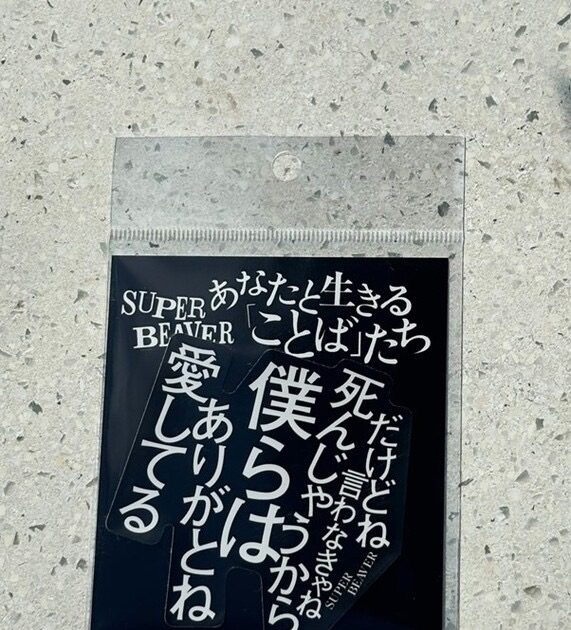 SUPER
BEAVER
あなたと生きる
「ことば」たち
だけどね
死んじゃうから
言わなきゃね
僕らは
ありがとね
愛してる
SUPER
BEAVER